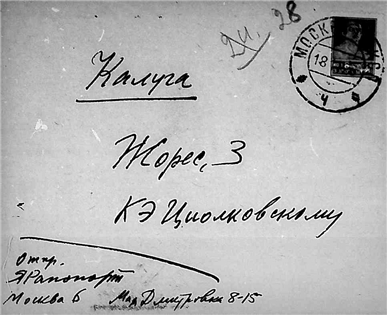 28
МОСК
18
Калуга
Жорес, 3
КЭ Циолковскому
Отпр.
ЯРапопорт
Москва 6 Мал Дмитровка 8-15